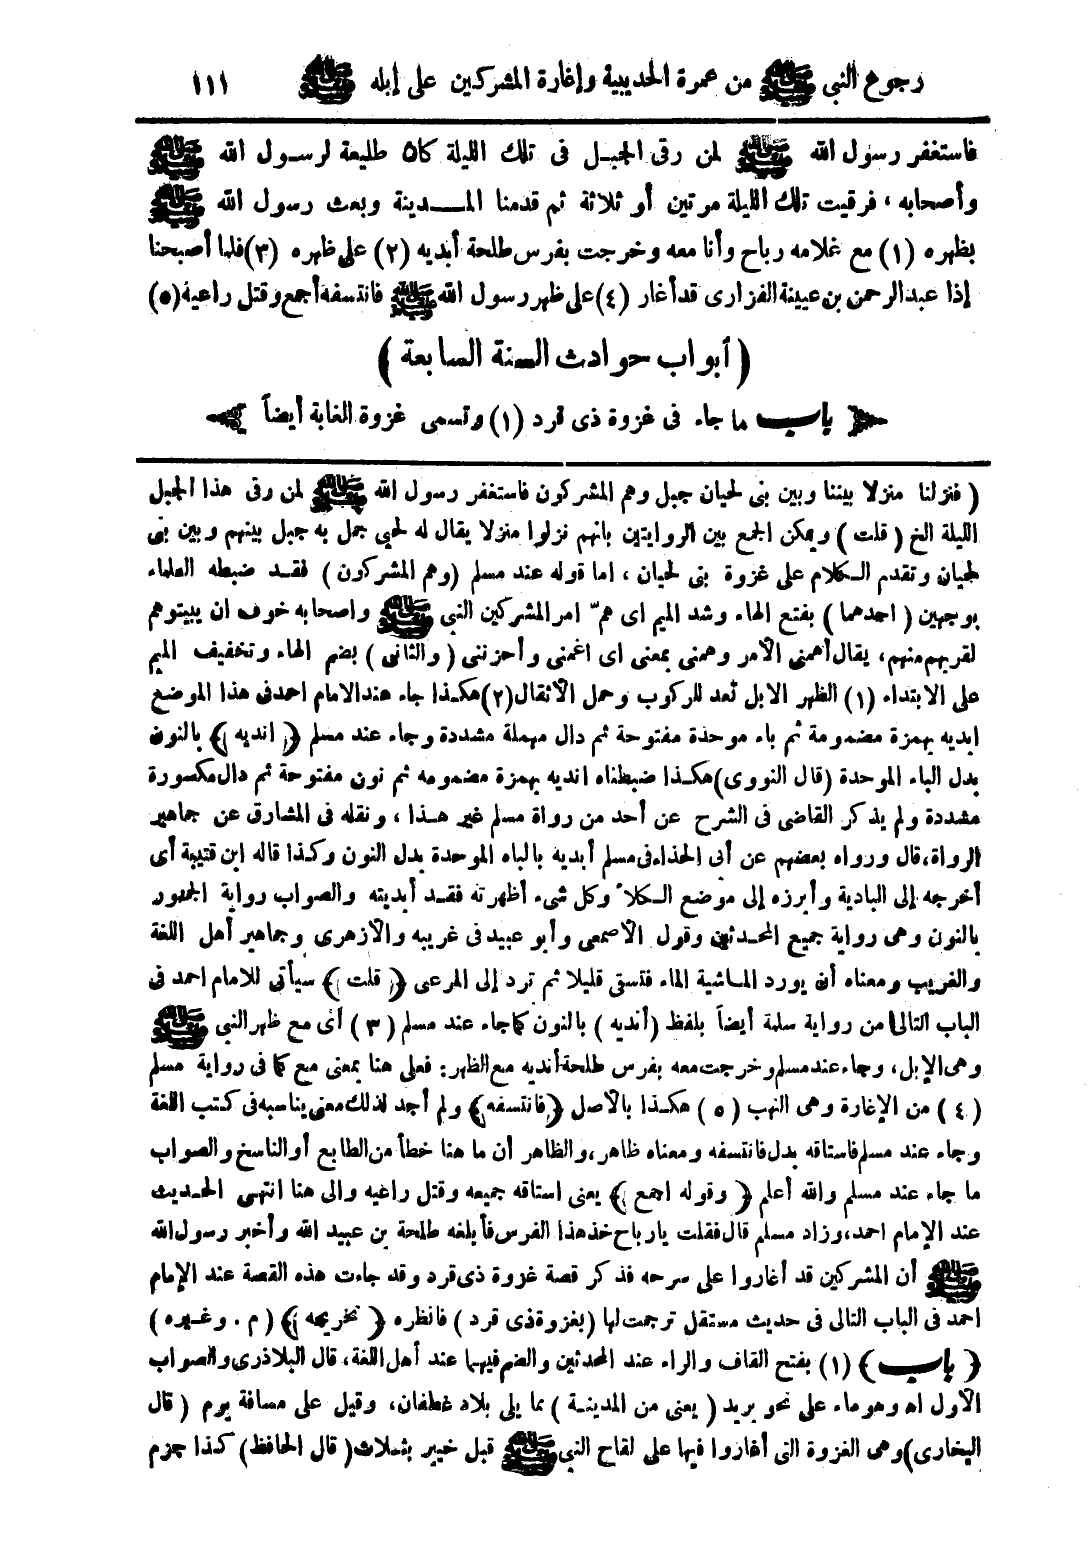 رجوع النبى ﷺ من عمرة الحديبية وإغارة المشركين على إبله ﷺ ١١١
فاستغفر رسول الله ﷺ لمن رقى الجبل فى تلك الليلة كان طليعة لرسول الله ﷺ
وأصحابه ، فرقيت تلك الليلة مرتين أو ثلاثة ثم قدمنا المدينة وبعث رسول الله ﷺ
بظهره (١) مع غلامه رباح وأنا معه وخرجت بفرس طلحة أبديه (٢) على ظهره (٣) فلما أصبحنا
إذا عبد الرحمن بن عيينة الفزارى قد أغار (٤) على ظهر رسول الله ﷺ فانتسفه أجمع وقتل راعيه (٥)
( أبواب حوادث السنة السابعة )
باب ما جاء فى غزوة ذى قرد (١) وتسمى غزوة الغابة أيضاً
( فنزلنا منزلا بيننا وبين بنى لحيان جبل وهم المشركون فاستغفر رسول الله ﷺ لمن رقى هذا الجبل
الليلة الخ ( قلت ) ويمكن الجمع بين الروايتين بانهم نزلوا منزلا يقال له لحى جمل به جبل بينهم وبين بنى
لحيان وتقدم الكلام على غزوة بنى لحيان ، اما قوله عند مسلم (وهم المشركون) فقد ضبطه العلماء
بوجهين ( احدهما ) بفتح الهاء وشد الميم اى همّ امر المشركين النبى ﷺ واصحابه خوف ان يبيتوهم
لقربهم منهم، يقال أهمنى الأمر وهمنى بمعنى اى اغمنى وأحزننى ( والثانى ) بضم الهاء وتخفيف الميم
على الابتداء (١) الظهر الابل تُعد للركوب وحمل الأثقال (٢) هكذا جاء عند الامام احمد فى هذا الموضع
ابديه بهمزة مضمومة ثم باء موحدة مفتوحة ثم دال مهملة مشددة وجاء عند مسلم ( انديه ) بالنون
بدل الباء الموحدة (قال النووى) هكذا ضبطناه انديه بهمزة مضمومه ثم نون مفتوحة ثم دال مكسورة
مشددة ولم يذكر القاضى فى الشرح عن أحد من رواة مسلم غير هذا ، ونقله فى المشارق عن جماهير
الرواة، قال ورواه بعضهم عن أبى الحذاء فى مسلم أبديه بالباء الموحدة بدل النون وكذا قاله ابن قتيبة أى
أخرجه إلى البادية وأبرزه إلى موضع الكلأ وكل شىء أظهرته فقد أبديته والصواب رواية الجمهور
بالنون وهى رواية جميع المحدثين وقول الأصمعى وأبو عبيد فى غريبه والأزهرى وجماهير أهل اللغة
والغريب ومعناه أن يورد الماشية الماء فتسقى قليلا ثم ترد إلى المرعى ( قلت ) سيأتى للامام احمد فى
الباب التالى من رواية سلمة أيضاً بلفظ (أنديه ) بالنون كما جاء عند مسلم ( ٣ ) أى مع ظهر النبى ﷺ
وهى الإبل، وجاء عند مسلم وخرجت معه بفرس طلحة أنديه مع الظهر: فعلى هنا بمعنى مع كما فى رواية مسلم
( ٤ ) من الإغارة وهى النهب ( ٥ ) هكذا بالأصل (فانتسفه) ولم أجد لذلك معنى يناسبه فى كتب اللغة
وجاء عند مسلم فاستاقه بدل فانتسفه ومعناه ظاهر، والظاهر أن ما هنا خطأ من الطابع أو الناسخ والصواب
ما جاء عند مسلم والله أعلم ( وقوله اجمع ) يعنى استاقه جميعه وقتل راعيه والى هنا انتهى الحديث
عند الإمام احمد، وزاد مسلم قال فقلت يارباح خذ هذا الفرس فأبلغه طلحة بن عبيد الله وأخبر رسول الله
ﷺ أن المشركين قد أغاروا على سرحه فذكر قصة غزوة ذى قرد وقد جاءت هذه القصة عند الإمام
احمد فى الباب التالى فى حديث مستقل ترجمت لها (بغزوة ذى قرد ) فانظره ( تخريجه ) ( م . وغيره )
( باب ) (١) بفتح القاف والراء عند المحدثين والضم فيهما عند أهل اللغة، قال البلاذرى والصواب
الأول اه وهو ماء على نحو بريد ( يعنى من المدينة ) مما يلى بلاد غطفان، وقيل على مسافة يوم ( قال
البخارى) وهى الغزوة التى أغاروا فيها على لقاح النبى ﷺ قبل خيبر بثلاث ( قال الحافظ) كذا جزم